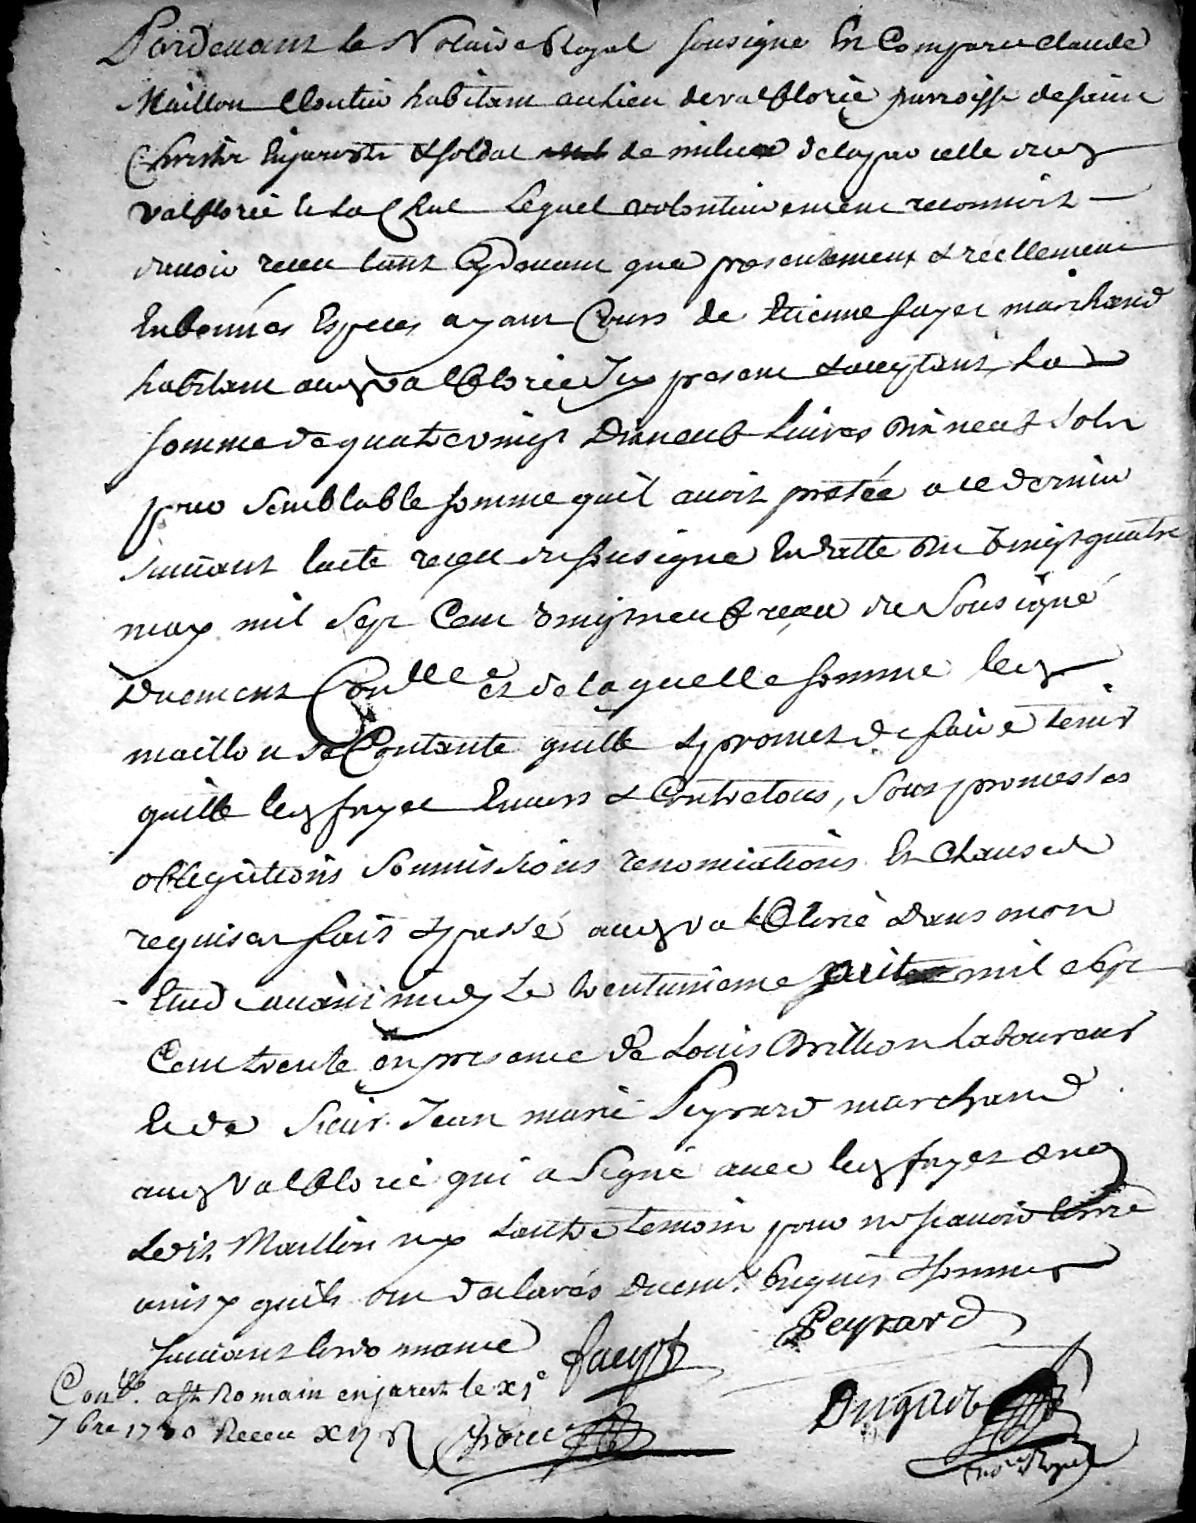 Pardevant le Notaire Royal sousigné Est Comparu claude
Maillon Cloutier habitant au lieu de valflorie parroisse de saint
Christo Enjarestz & soldat de milice de la parcelle dud
valflorie et La Chal Lequel volontairement reconnoit
d'avoir receu tant Cy devant que presentement & reellement
En bonnes Especes ayant Cours de Etienne fayet marchand
habitant aud valflorie Icy present & acceptant, La
somme de quatre vingt Dixneuf Livres dix neuf sols
pour semblable somme quil avoit pretée a ce dernier
suivant lacte reçeu du sousigné En datte du vingt quatre
may mil sept Cent vingtneuf receu du Sousigné
Duement Conllé et de laquelle somme led
maillon se Contante quitte & promet de faire tenir
quitte led fayet Envers & Contre tous, sous promesses
obligations soumissions renonciations Et clauses
requises fait & passé aud valflorie dans mon
Etude avant midy Le trentunieme mil sept
Cent trente en presence de Louis Brillion Laboureur
Et de sieur Jean marie Peyrard marchand
aud valflorie qui a signé avec led fayet & non
Ledit Maillon ny Lautre temoin pour ne scavoir Ecrire
ainsy quils ont declarés Duemt Enquis & sommés
suivant lordonnance
fayet Peyrard
Conllé a St Romain enjarestz le xje
7bre 1730 Receu xij s
Dugas
nore Royal